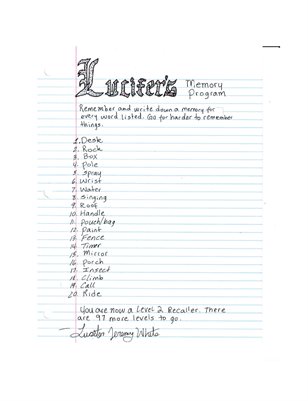 Lucifer's Memory
Program
Remember and write down a memory for
every word listed. Go for harder to remember
things.
1. Desk
2. Rock
3. Box
4. Pole
5. Spray
6. Wrist
7. Water
8. Singing
9. Roof
10. Handle
11. Pouch/bag
12. Paint
13. Fence
14. Timer
15. Mirror
16. Porch
17. Insect
18. Climb
19. Call
20. Ride
You are now a Level 2 Recaller. There
are 97 more levels to go.
Jeremy White